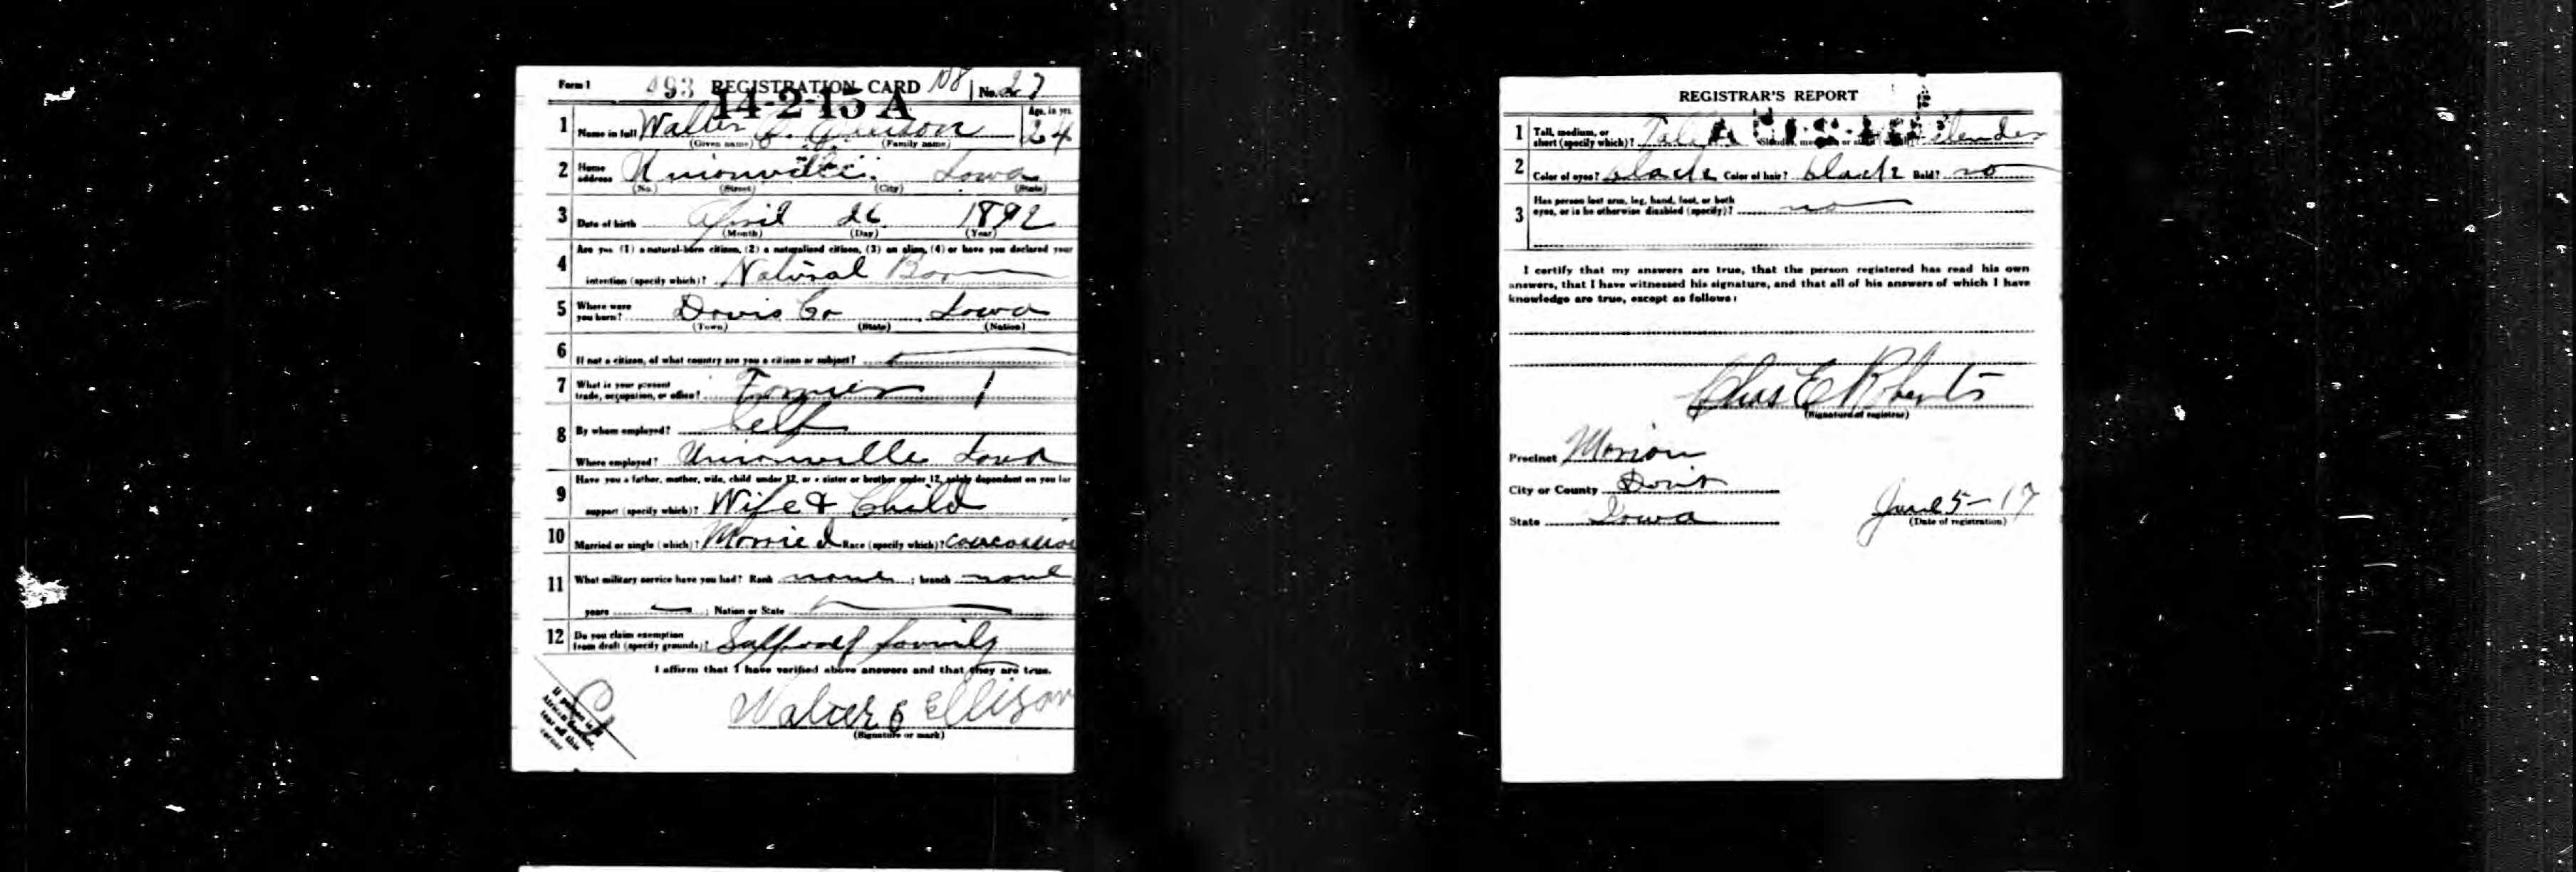 Form 1 493 REGISTRATION CARD 108 No. 27
14-2-15 A
1 Name in full Walter E. Ellison Age, in yrs. 24
(Given name) (Family name)
2 Home address Unionville. Iowa
(No.) (Street) (City) (State)
3 Date of birth April 26 1892
(Month) (Day) (Year)
Are you (1) a natural-born citizen, (2) a naturalized citizen, (3) an alien, (4) or have you declared your
4 intention (specify which)? Natural Born
5 Where were you born? Davis Co Iowa
(Town) (State) (Nation)
6 If not a citizen, of what country are you a citizen or subject?
7 What is your present trade, occupation, or office? Farmer 1
8 By whom employed? Self
Where employed? Unionville Iowa
9 Have you a father, mother, wife, child under 12, or a sister or brother under 12, solely dependent on you for
support (specify which)? Wife & Child
10 Married or single (which)? Married Race (specify which)?
11 What military service have you had? Rank none ; branch none
years ; Nation or State
12 Do you claim exemption from draft (specify grounds)? family
I affirm that I have verified above answers and that they are true.
Walter E Ellison
(Signature or mark)
If person is of
African descent,
tear off this
corner
REGISTRAR'S REPORT
1 Tall, medium, or short (specify which)? Tall Slender, medium, or stout (which)? Slender
2 Color of eyes? black Color of hair? black Bald? no
3 Has person lost arm, leg, hand, foot, or both eyes, or is he otherwise disabled (specify)? no
I certify that my answers are true, that the person registered has read his own
answers, that I have witnessed his signature, and that all of his answers of which I have
knowledge are true, except as follows:
Chas E Roberts
(Signature of registrar)
Precinct Marion
City or County Davis
State Iowa
June 5-17
(Date of registration)